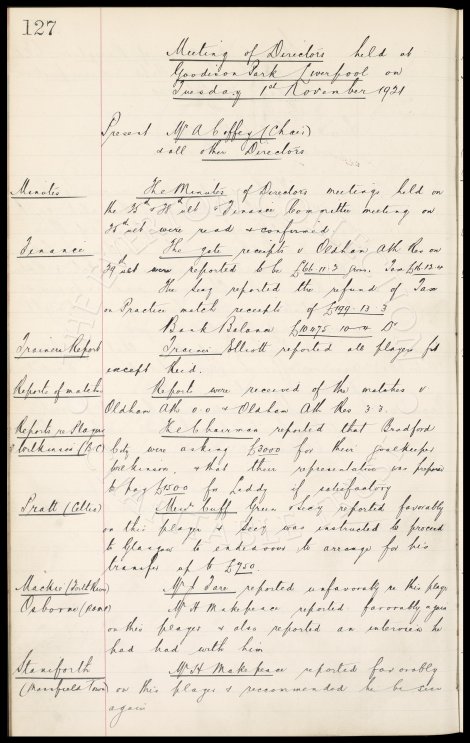 127
Meeting of Directors held at
Goodison Park Liverpool on
Tuesday 1st November 1921
Present Mr A Coffey (Chair)
& all other Directors
Minutes The Minutes of Directors meetings held on
the 25th & 28th ult & Finance Committee meeting on
25th ult were read & confirmed
Finance The gate receipts v Oldham Ath Res on
29th ult were reported to be £66-11-3 Tax
The Secy reported the refund of Tax
on Practice match receipts of £199-13-3
Bank Balance £10475 10-4 Dr
Trainers Report Trainer Elliott reported all players fit
except Reid.
Reports of matches Reports were received of the matches v
Oldham Ath 0 0 & Oldham Ath Res 3 3.
Reports re Players The Chairman reported that Bradford
& Wilkinson (B.C) City were asking £3000 for their goalkeeper
Wilkinson, & that their representative was prepared
to pay £1500 for Leddy if satisfactory
Pratt (Celtic) Messrs Cuff Green & Secy reported favorably
on this player & Secy was instructed to proceed
to Glasgow to endeavour to arrange for his
transfer up to £750.
Mackie (Forth River) Mr J. Fare reported unfavorably re this player
Osborne Mr H Makepeace reported favorably again
on this player & also reported an interview he
had had with him
Staniforth Mr H Makepeace reported favorably
(Mansfield Town) on this player & recommended he be seen
again